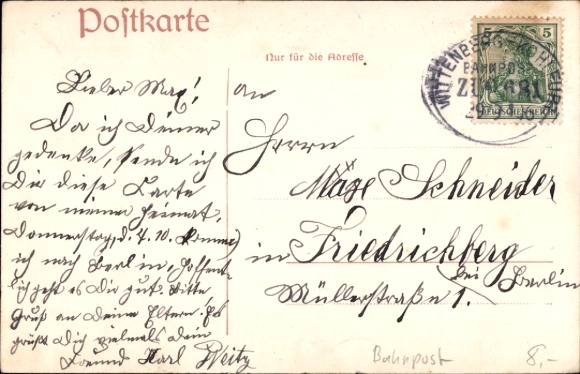 Postkarte
Nur für die Adresse
5 5
WITTENBERG
BAHNPOST
ZUG 681
DEUTSCHES REICH
Lieber Max!
Da ich Deiner
gedenke, sende ich
Dir diese Carte
von meiner Heimat.
Donnerstag, d. 7.10. komme
ich nach Berlin, hoffent-
lich geht es Dir gut. Bitte
Gruß an Deine Eltern. Es
grüßt Dich vielmals Dein
Freund Karl
an
Herrn
Maxe Schneider
in Friedrichberg
bei Berlin
Müllerstraße 1.
Bahnpost
8,-